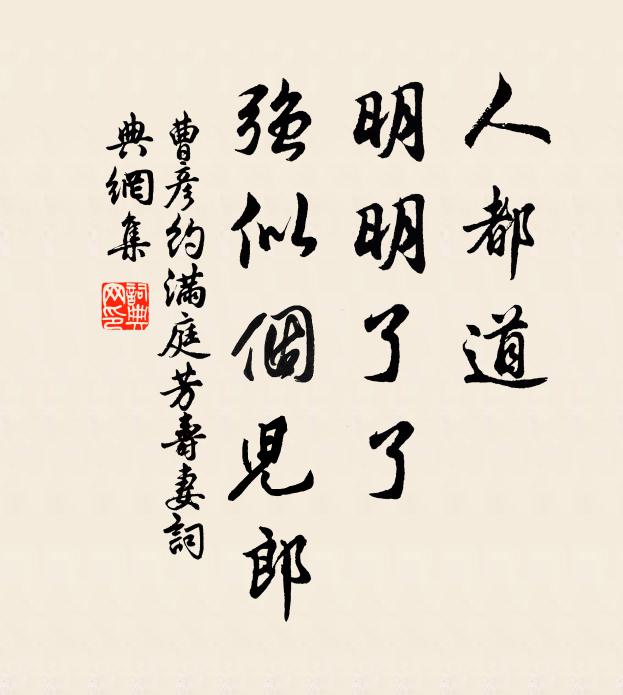 人都道
明明了了
強似個児郎
曹彦約満庭芳壽妻詞
典網集
詞典
网印